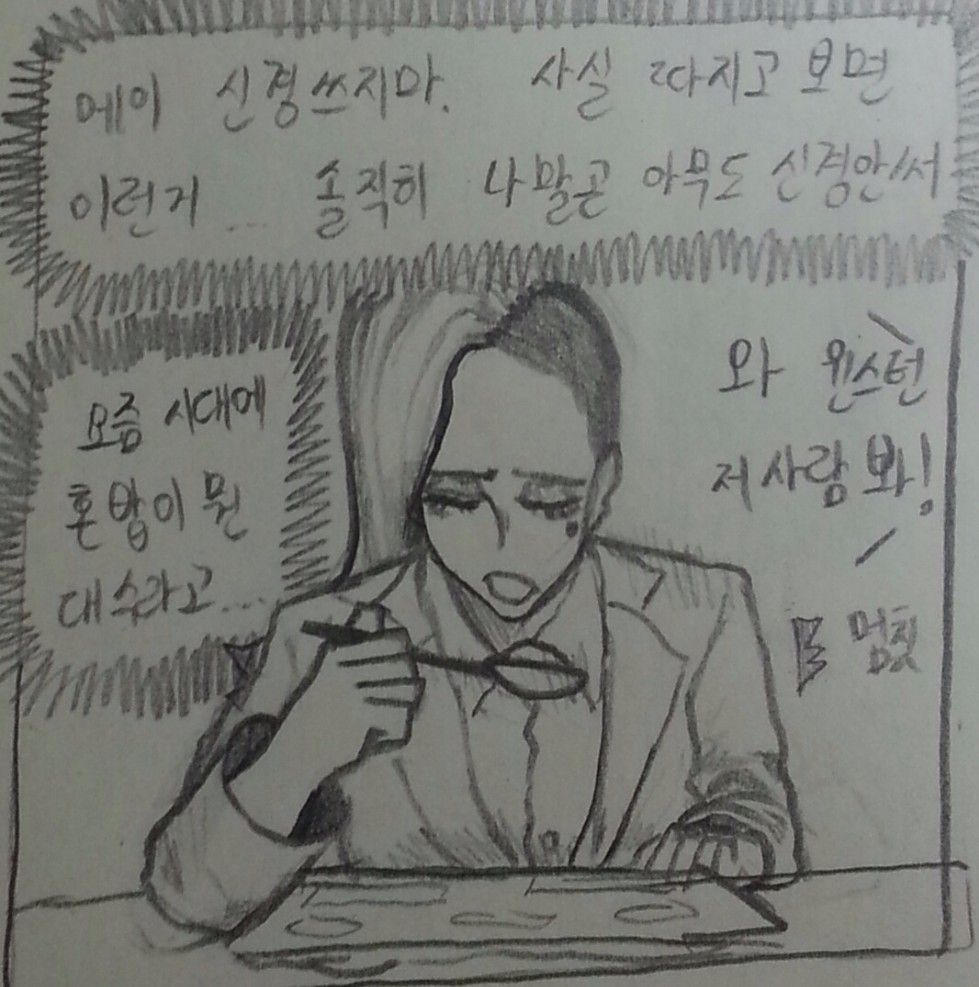 에이 신경쓰지마. 사실 따지고 보면
이런거 ... 솔직히 나말곤 아무도 신경안써
요즘 시대에
혼밥이 뭔
대수라고...
와 윈스턴
저사람 봐!
멈칫